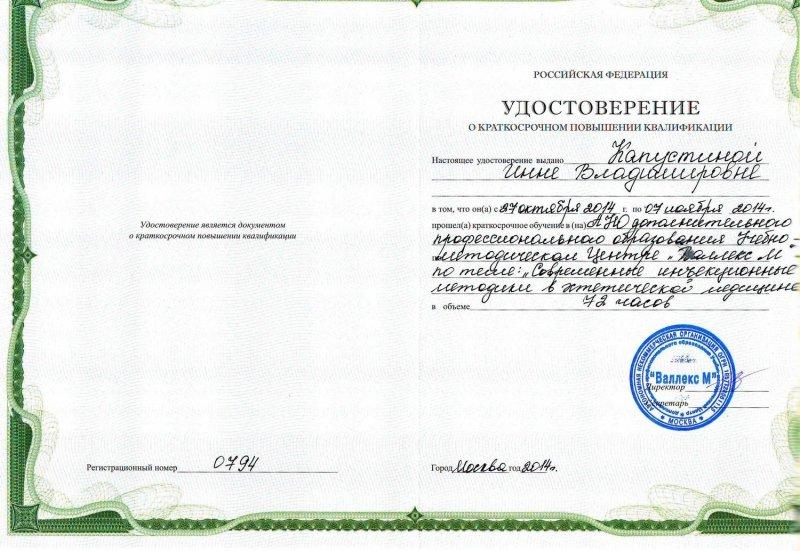 Удостоверение является документом
о краткосрочном повышении квалификации
Регистрационный номер 0794
РОССИЙСКАЯ ФЕДЕРАЦИЯ
УДОСТОВЕРЕНИЕ
О КРАТКОСРОЧНОМ ПОВЫШЕНИИ КВАЛИФИКАЦИИ
Настоящее удостоверение выдано Капустиной
Инне Владимировне
в том, что он(а) с 27 октября 2014 г. по 07 ноября 2014г.
прошел(а) краткосрочное обучение в (на) АНО дополнительного
профессионального образования Учебно-
методическом Центре "Валлекс М"
по теме: "Современные инъекционные
методики в эстетической медицине
в объеме 72 часов
"Валлекс М"
Директор
Секретарь
МОСКВА
Город Москва год 2014г.